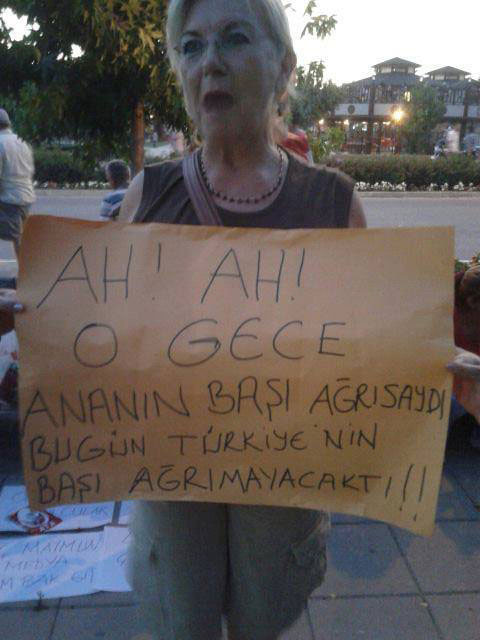 AH! AH!
O GECE
ANANIN BAŞI AĞRISAYDI
BUGÜN TÜRKİYE'NİN
BAŞI AĞRIMAYACAKTI!!!
MAYMUN
MEDYA